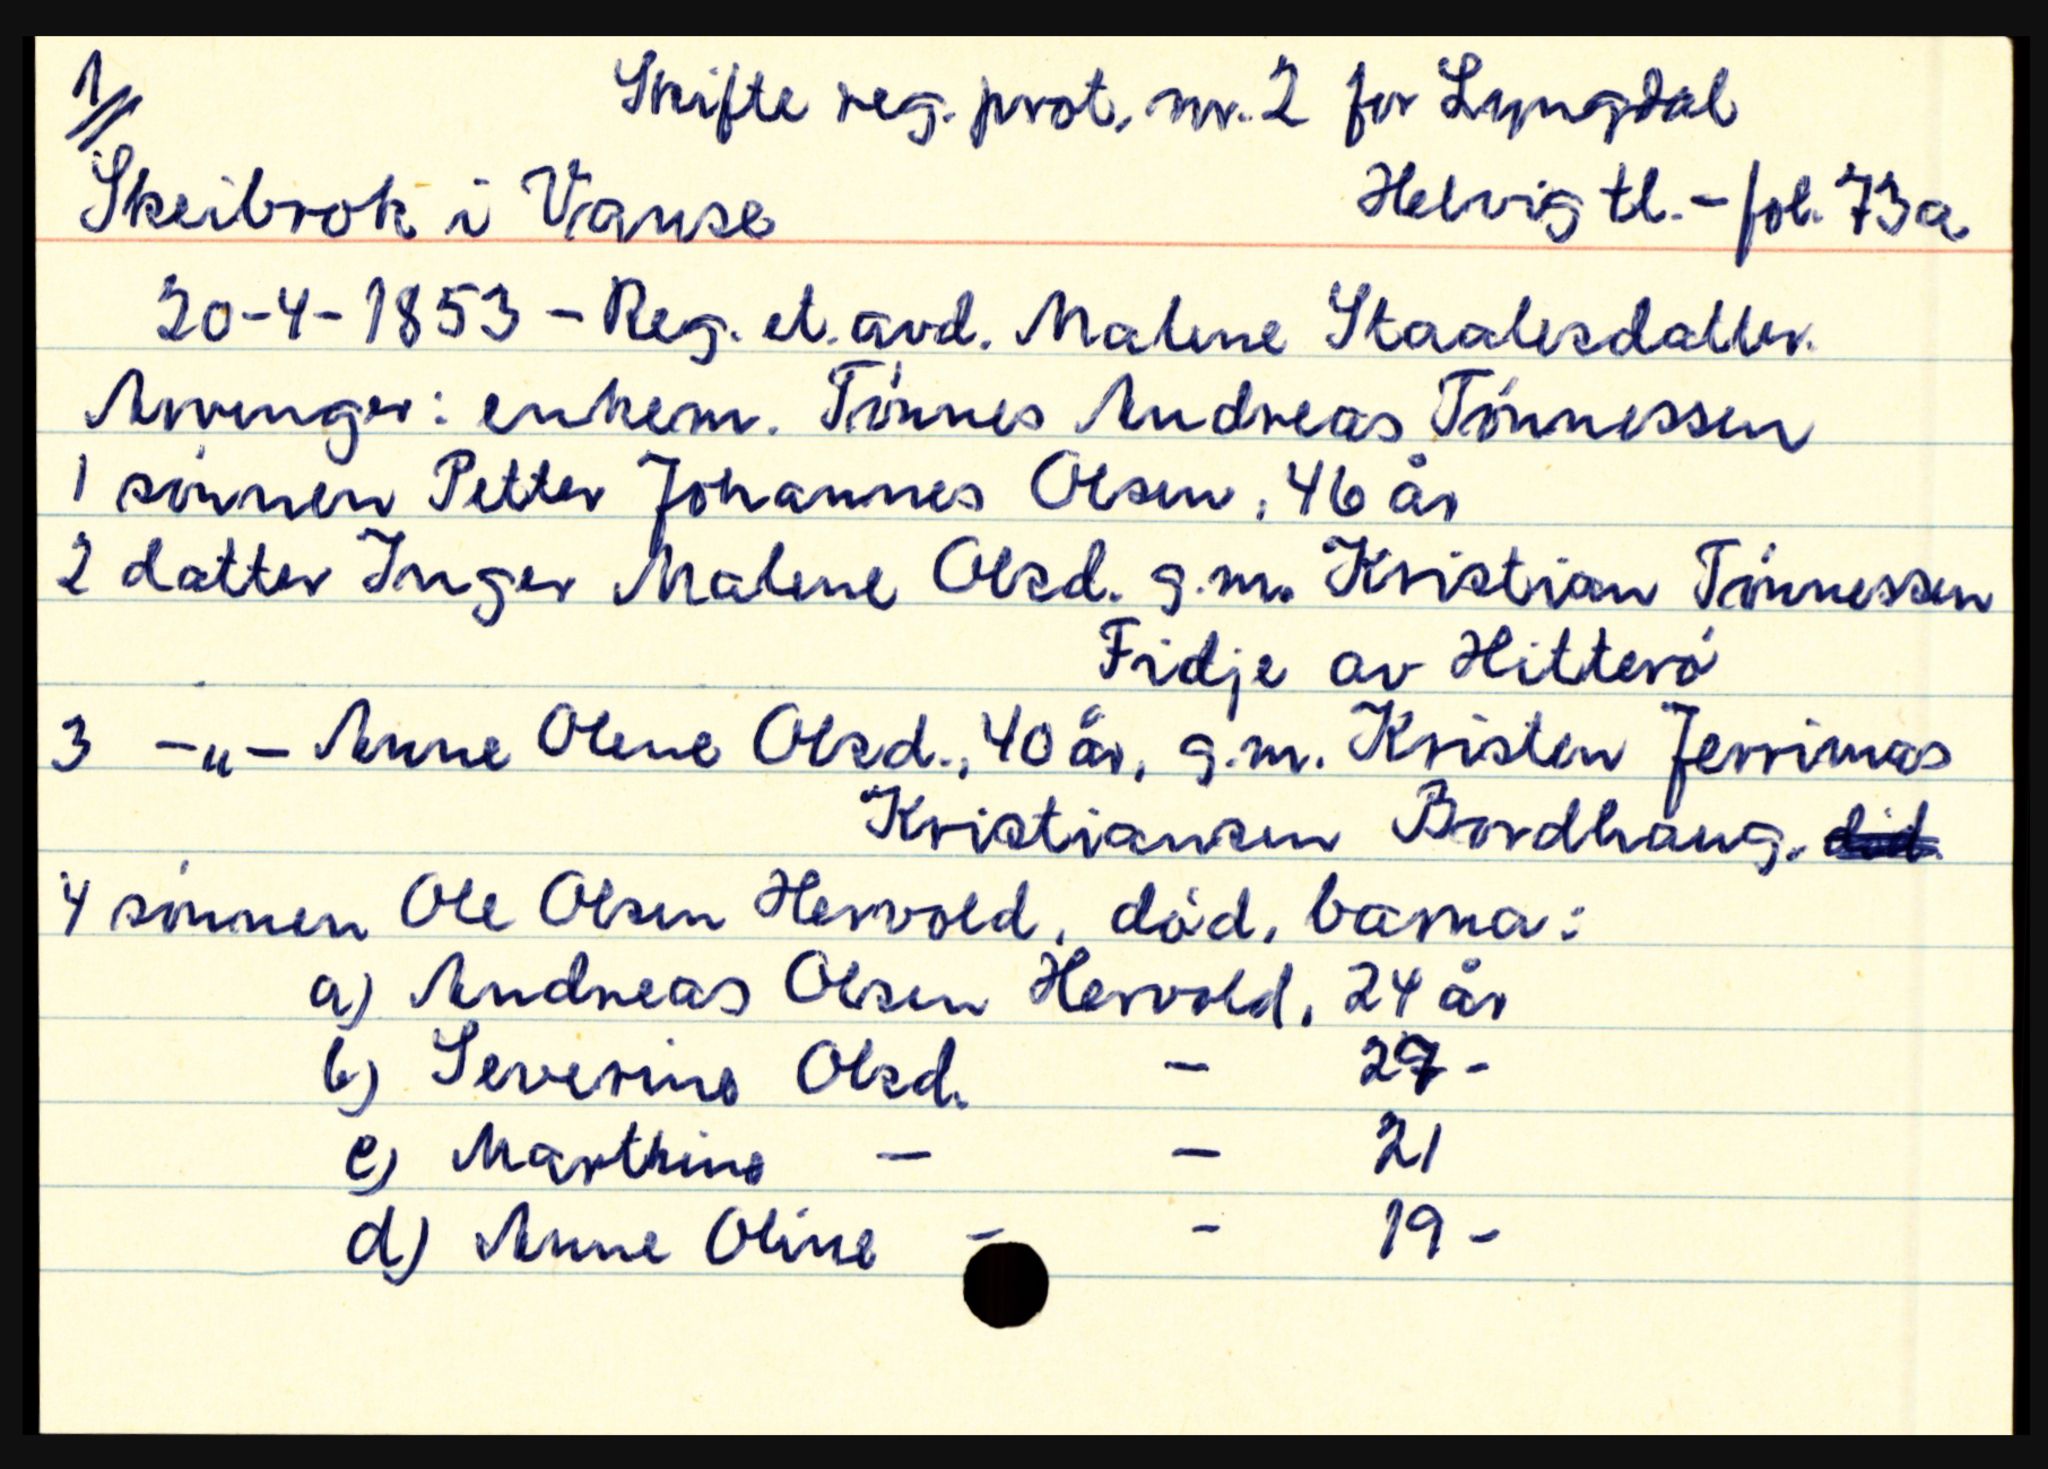 1//
Skifte reg. prot. nr. 2 for Lyngdal
Skeibrok i Vanse Helvig tl. - fol. 73a
20-4-1853 - Reg. et. avd. Malene Staalesdatter.
Arvinger: enkem. Tönnes Andreas Tönnessen
1 sönnen Petter Johannes Olsen, 46 år
2 datter Inger Malene Olsd. g.m. Kristian Tönnessen
Fidje av Hitterö
3 -„- Anne Olene Olsd., 40 år, g.m. Kristen Jerrimas
Kristiansen Bordhaug.
4 sönnen Ole Olsen Hervold, död, barna:
a) Andreas Olsen Hervold, 24 år
b) Severine Olsd. - 27 -
c) Marthine - - 21
d) Anne Oline - - 19 -